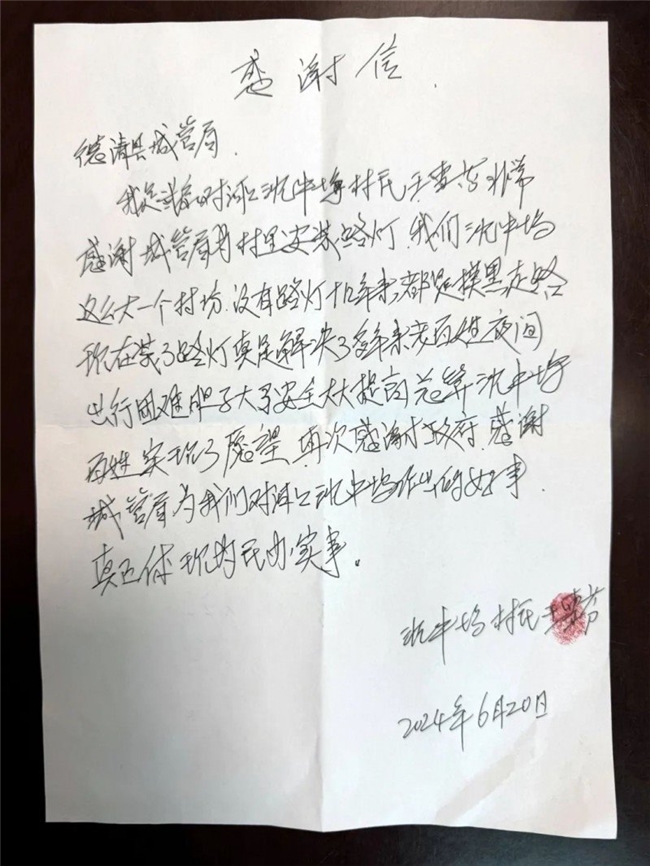 感谢信.
德清县城管局.
我是武康对河口沈中坞村民王 芳非常
感谢城管局为村里安装路灯.我们沈中坞
这么大一个村坊.没有路灯几十年来都是摸黑走路
现在装了路灯真是解决了多年来老百姓夜间
出行困难胆子大了安全大大提高总算沈中坞
百姓实现了愿望.再次感谢政府.感谢
城管局.为我们对河口沈中坞作出的好事.
真正体现为民办实事。
沈中坞村民王 芳
2024年6月20日